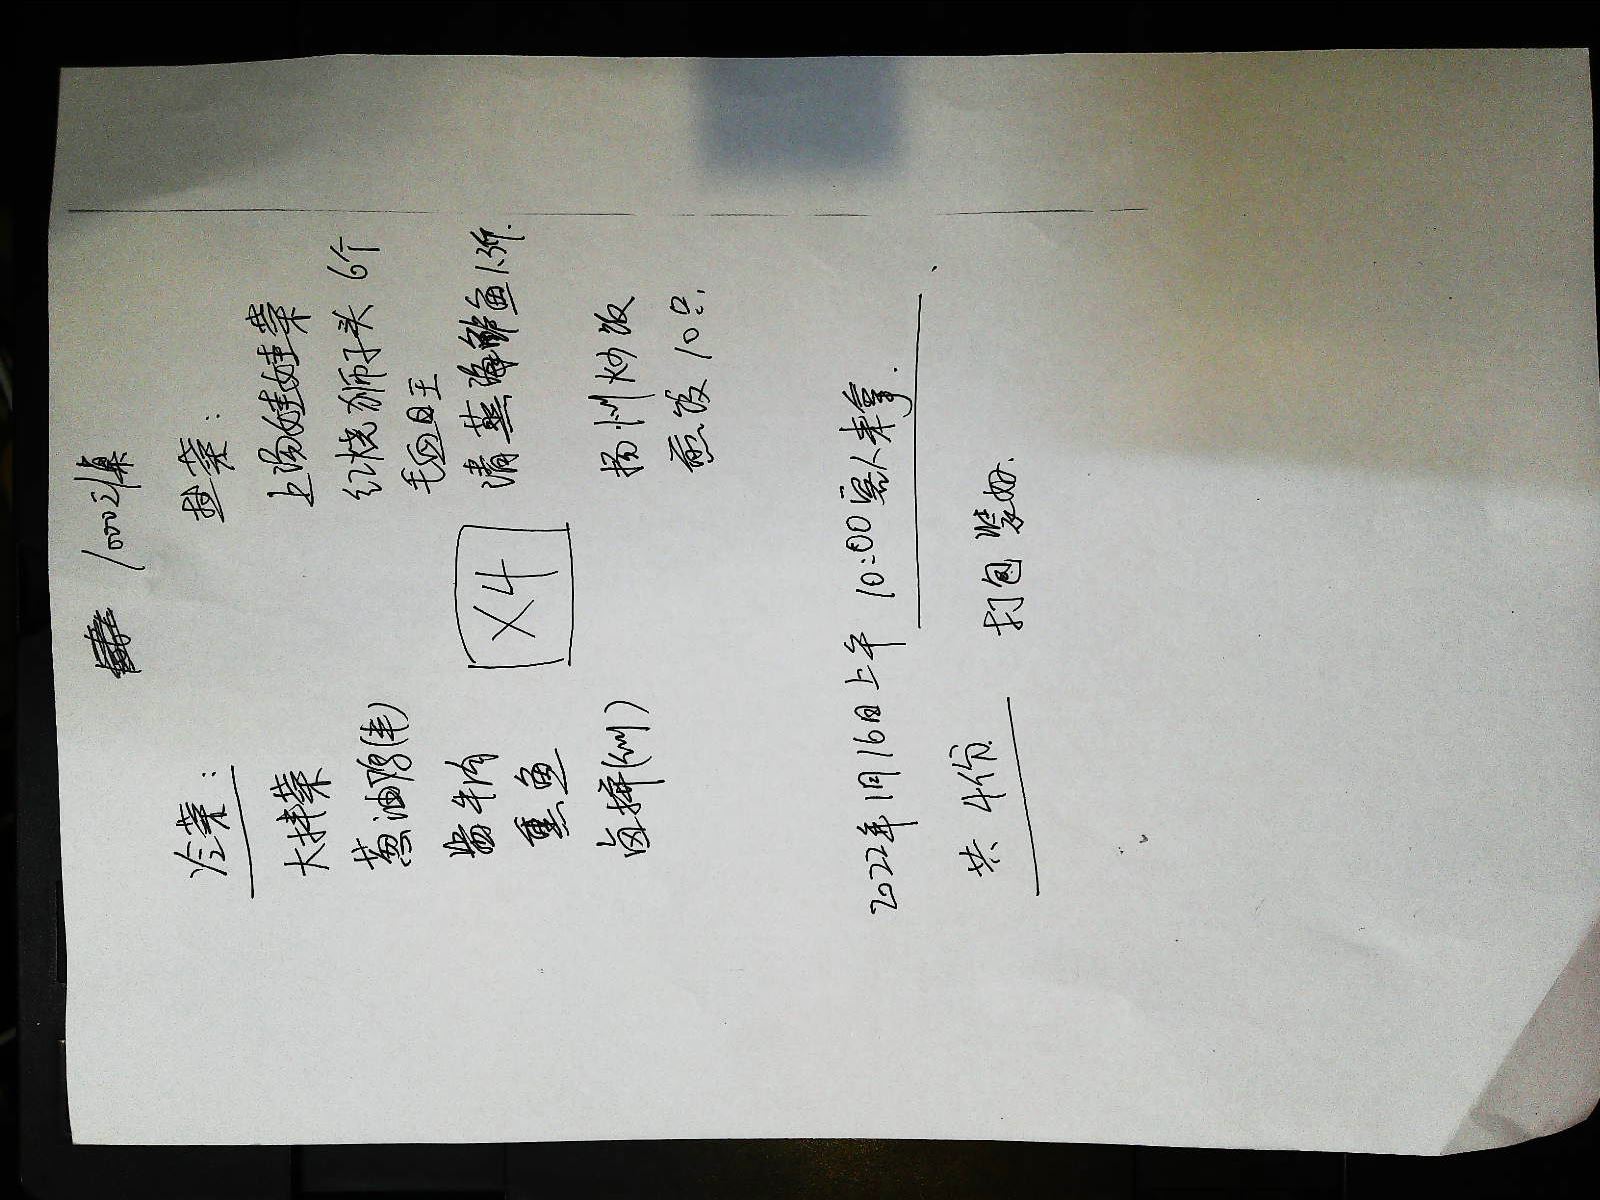 1000/桌
冷菜:
大拌菜
葱油鸡(半)
酱牛肉
熏鱼
卤拼(例)
X4
热菜:
上汤娃娃菜
红烧狮子头 6个
毛血旺
清蒸海鲈鱼1.3斤.
扬州炒饭
煎饺 10只.
2022年1月16日上午 10:00 客人来拿.
共 4份. 打包 装好.